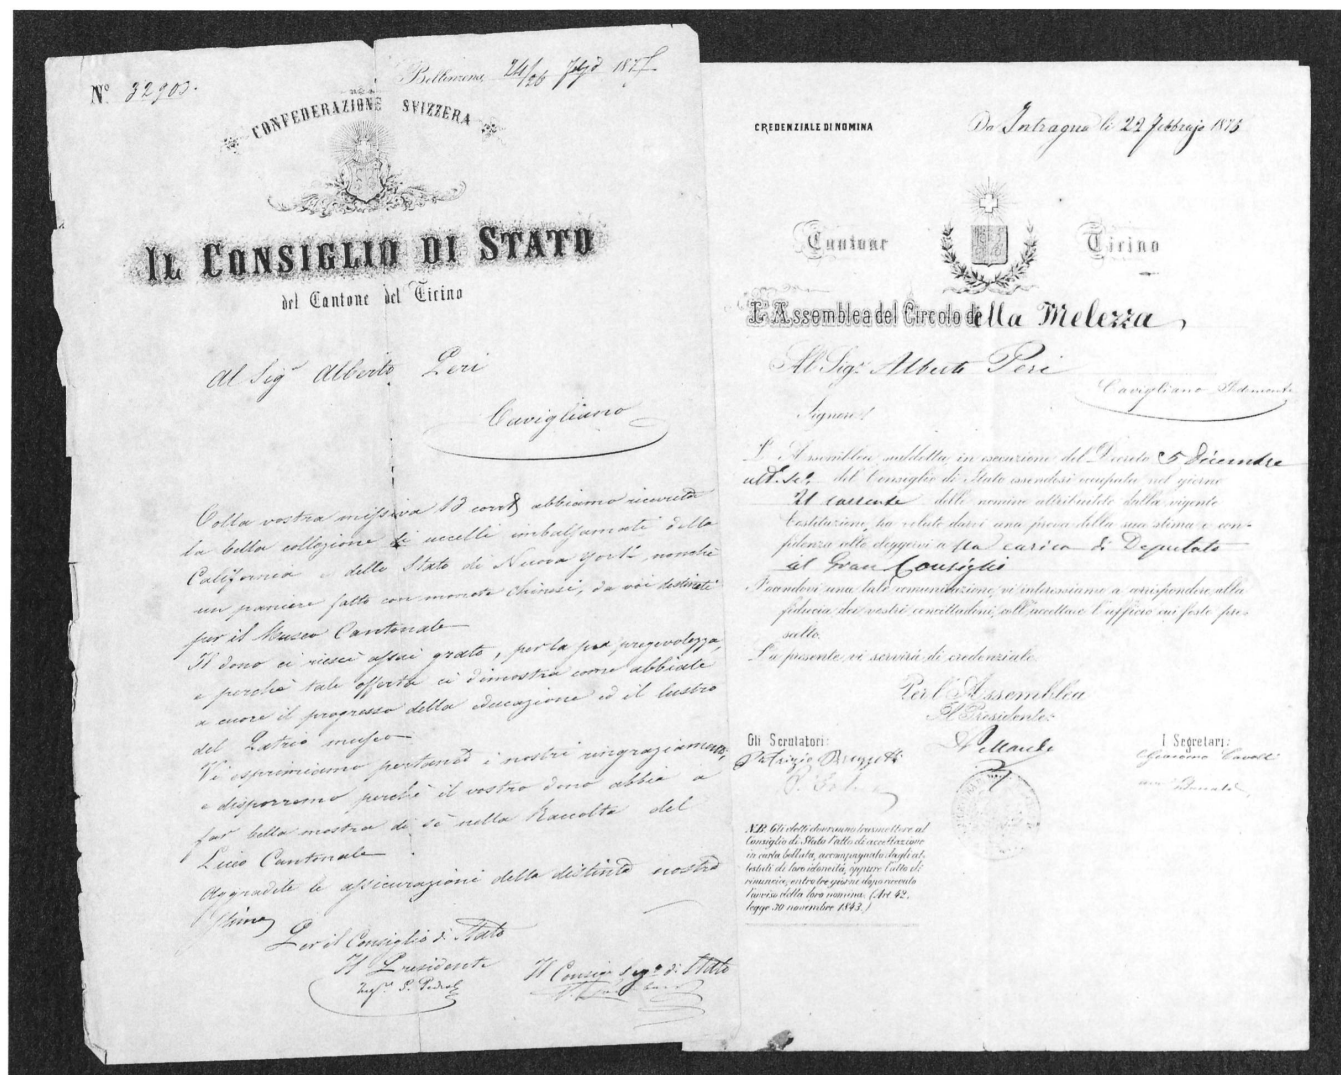 Nº 32903.
Bellinzona, 24/26 187
CONFEDERAZIONE SVIZZERA
IL CONSIGLIO DI STATO
del Cantone del Ticino
Al Sigr Alberto Peri
Cavigliano
Colla vostra missiva 13 corrte abbiamo ricevuto
la bella collezione di uccelli imbalsamati della
California e dello Stato di Nuova York, nonchè
un paniere fatto con monete chinesi, da voi destinati
per il Museo Cantonale
Il dono ci riescì assai grato, per la sua pregevolezza,
e perchè tale offerta ci dimostra come abbiate
a cuore il progresso della educazione ed il lustro
del Patrio museo
Vi esprimiamo pertanto i nostri ringraziamenti,
e disporremo perchè il vostro dono abbia a
far bella mostra di sè nella Raccolta del
Liceo Cantonale
Aggradite le assicurazioni della distinta nostra
stima
Per il Consiglio di Stato
Il Presidente
Il Consigr Segro di Stato
CREDENZIALE DI NOMINA
Da Intragna li 22 febbrajo 1875
Cantone Ticino
L'Assemblea del Circolo della Melezza
Al Sigr. Alberto Peri
Cavigliano Pedemonte
Signore!
L'Assemblea suddetta, in esecuzione del Decreto 5 Dicembre
del Consiglio di Stato essendosi occupata nel giorno
21 corrente delle nomine attribuitele dalla vigente
Costituzione, ha voluto darvi una prova della sua stima e con-
fidenza alla carica di Deputato
al Gran Consiglio
Facendovi una tale comunicazione, vi interessiamo a corrispondere alla
fiducia dei vostri concittadini, coll'accettare l'ufficio cui foste pre-
scelto.
La presente vi servirà di credenziale.
Per l'Assemblea
Il Presidente:
Gli Scrutatori:
I Segretari:
Giacomo Cavalli
N.B. Gli eletti dovranno trasmettere al
Consiglio di Stato l'atto di accettazione
in carta bollata, accompagnato dagli at-
testati di loro idoneità, oppure l'atto di
rinuncia, entro tre giorni dopo ricevuto
l'avviso della loro nomina. (Art 42.
legge 30 novembre 1843.)